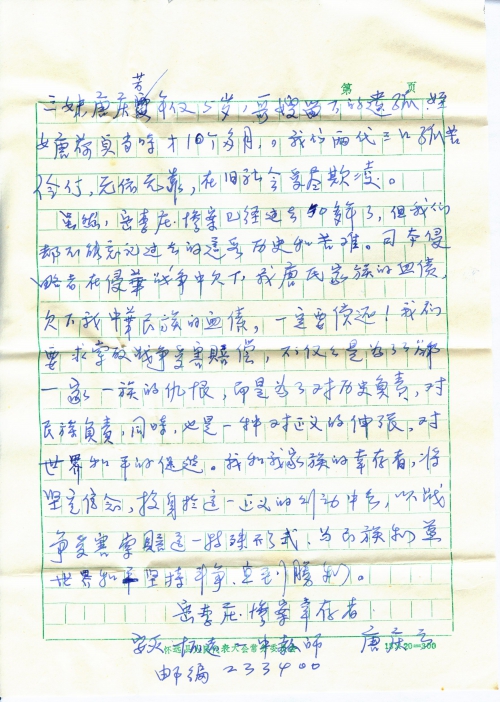 第 页
芳
三妹唐庆 年仅5岁，哥嫂留下的遗孤：侄
女唐荷贞当时才10个多月。我们两代三口孤苦
伶仃，无依无靠，在旧社会受尽欺凌。
虽然， 惨案已经过去 多年了，但我们
都不能忘记过去的这段历史和苦难。日本侵
略者在侵華战争中欠下我唐氏家族的血债，
欠下我中華民族的血债，一定要偿还！我们
要求索取战争受害赔偿，不仅仅是为了
一家一族的仇恨，而是为了对历史负责，对
民族负责，同時，也是一种对正义的伸張，对
世界和平的促进。我和我家族的幸存者，将
坚定信念，投身於這一正义的 中去，以战
争受害索賠這一特殊形式，为民族和
世界和平坚持斗争，直到勝利。
惨案幸存者：
安 怀远一中教师 唐庆
怀远县 表大会常 委 20=300
邮编 233400